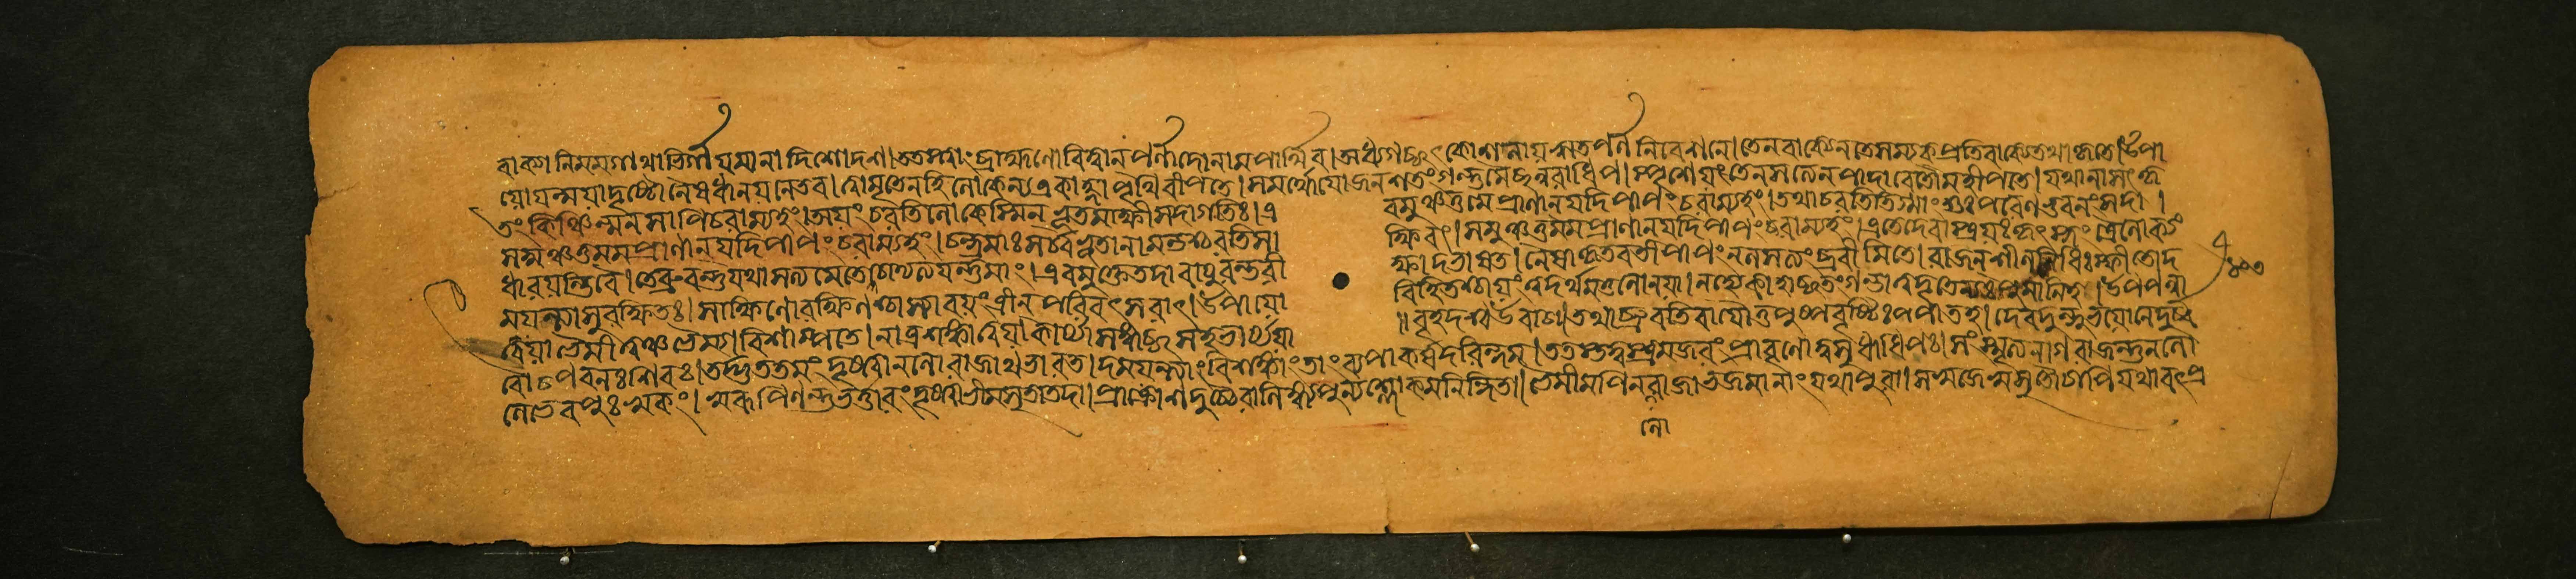 বাক্যানি মম গাথাভির্গীয়মানা দিশো দশ। ততস্ত্বাং ব্রাহ্মণো বিদ্বান্ পর্ণাদো নাম পার্থিব। অভ্যগচ্ছৎ কোশলায়ামৃতুপর্ণনিবেশনে। তেন বাক্যেনতে সম্যক্ প্রতিবাক্যে তথাহৃতে। উপা
য়োয়ং ময়া দৃষ্টো নৈষধানয়নে তব। ত্বামৃতে ন হি লোকেন্য একাহ্না পৃথিবীপতে। সমর্থো যোজনশতং গন্তুমশ্বৈর্নরাধিপ। স্পৃশেয়ং তেন সত্যেন পাদাবেতৌ মহীপতে। যথা নাসৎকৃ
তং কিঞ্চিন্মনসাপি চরাম্যহং। অয়ং চরতি লোকেস্মিন্ ভূতসাক্ষী সদাগতিঃ। এ বমুঞ্চতু মে প্রাণান্ যদি পাপং চরাম্যহং। তথা চরতি তিগ্মাংশুঃ পরেণ ভুবনং সদা।
স মুঞ্চতু মম প্রাণান্ যদি পাপং চরাম্যহং। চন্দ্রমাঃ সর্বভূতানামন্তশ্চরতি সা ক্ষিবৎ। স মুঞ্চতু মম প্রাণান্ যদি পাপং চরাম্যহং। এতে দেবাস্ত্রয়ঃ কৃৎস্নং ত্রৈলোক্যং
ধারয়ন্তি বৈ। তে ব্রুবন্তু যথা সত্যমেতে ত্যজন্তু মাং। এবমুক্তে তদা বায়ুরন্তরী ক্ষাদভাষত। নৈষা কৃতবতী পাপং নল সত্যং ব্রবীমি তে। রাজন্ শীলনিধিঃ স্ফীতো দ
ময়ন্ত্যা সুরক্ষিতঃ। সাক্ষিণো রক্ষিণশ্চাস্যা বয়ং ত্রীন্ পরিবৎসরাৎ। উপায়ো বিহিতশ্চায়ং ত্বদর্থমতুলোনয়া। ন হ্যেকাহ্না শতং গন্তা ত্বদৃতেন্যঃ পুমানিহ। উপপন্না
ত্বয়া ভৈমী ত্বঞ্চ ভৈম্যা বিশাম্পতে। নাত্র শঙ্কা ত্বয়া কার্য্যা সঙ্গচ্ছ সহ ভার্য্যয়া ॥ বৃহদশ্ব উবাচ। তথা ব্রুবতি বায়ৌ তু পুষ্পবৃষ্টিঃ পপাত হ। দেবদুন্দুভয়ো নেদুর্ব
বৌ চ পবনঃ শিবঃ। তদদ্ভুততমং দৃষ্ট্বা নলো রাজাথ ভারত। দময়ন্ত্যাং বিশঙ্কাং তাং ব্যপাকর্ষদরিন্দম। ততস্তদ্বস্ত্রমজরং প্রাবৃণোদ্বসুধাধিপঃ। সংস্মৃত্য নাগরাজন্তু ততো
লেভে বপুঃ স্বকং। স্বরূপিণন্তু ভর্ত্তারং দৃষ্ট্বা ভীমসুতা তদা। প্রাক্রোশদুচ্চৈরালিঙ্গ্য পুণ্যশ্লোকমনিন্দিতা। ভৈমীমপি নলো রাজা ভ্রাজমানাং যথা পুরা। সস্বজে স্বসুতৌ চাপি যথাবৎ প্র
লো